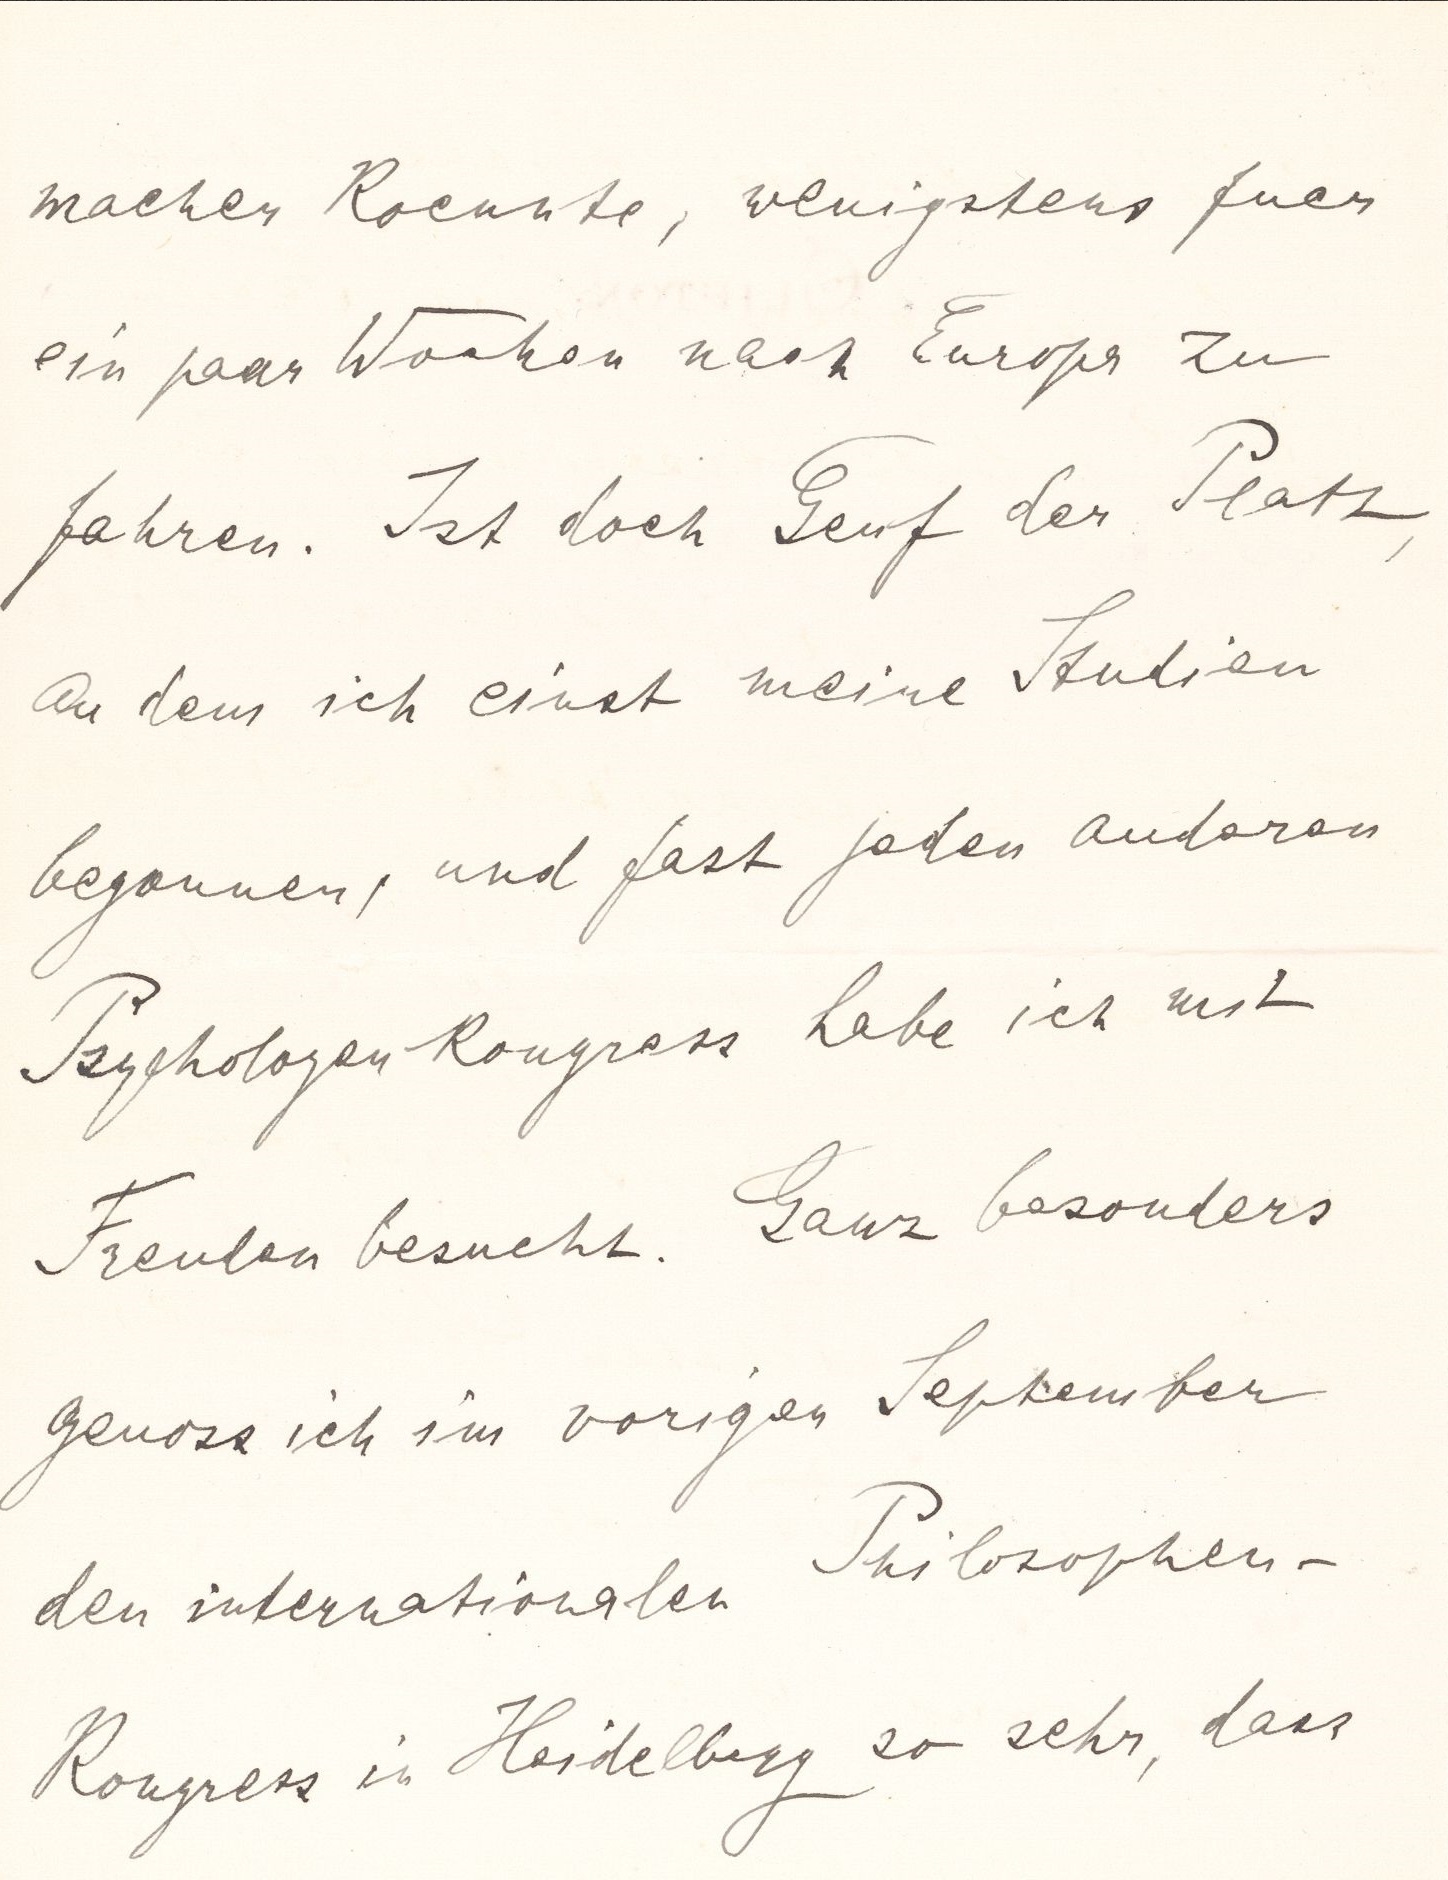 machen koennte, wenigstens fuer
ein paar Wochen nach Europa zu
fahren. Ist doch Genf der Platz,
an dem ich einst meine Studien
begonnen, und fast jeden anderen
Psychologen-Kongress habe ich mit
Freuden besucht. Ganz besonders
genoss ich im vorigen September
den internationalen Philosophen-
Kongress in Heidelberg so sehr, dass